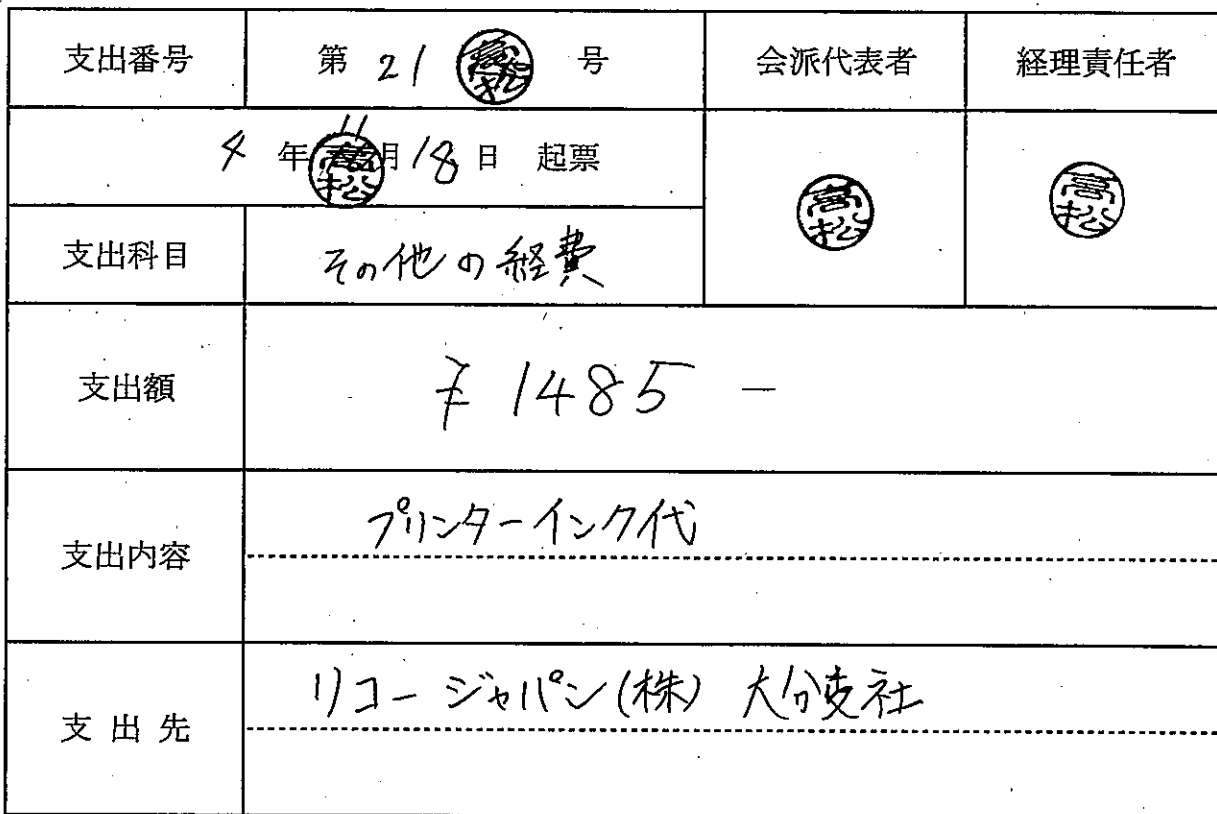 支出番号 第 21 号 会派代表者 経理責任者
4 年 11 月 18 日 起票
高松 高松 高松
支出科目 その他の経費
支出額 ¥ 1485 -
支出内容 プリンターインク代
支出先 リコージャパン(株) 大分支社